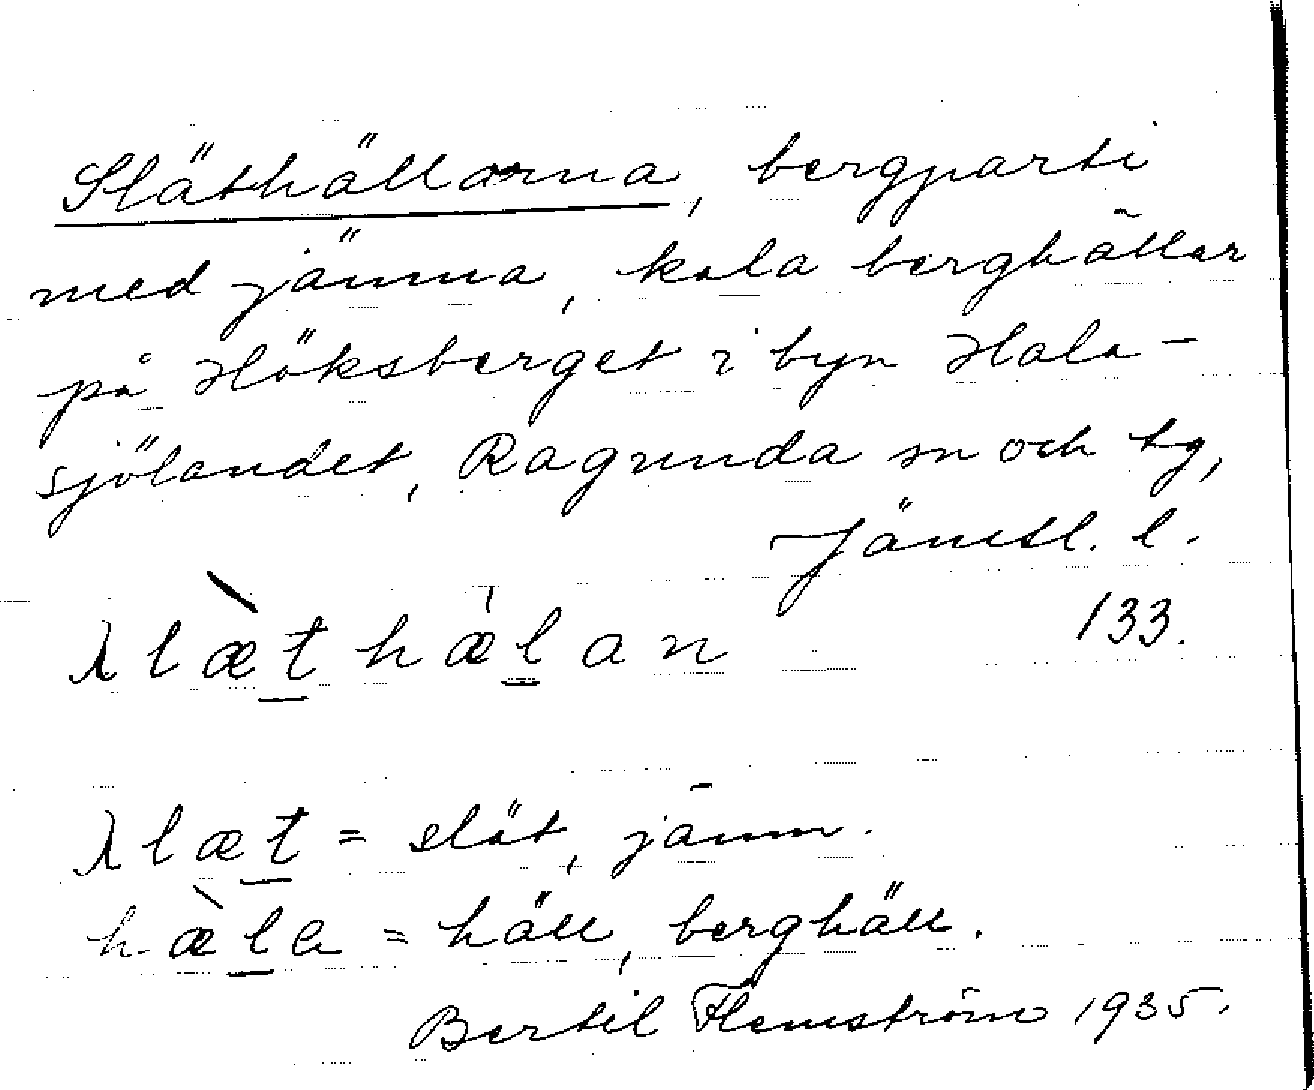 Släthällarna, bergparti
med jämna, kala berghällar
på Höksberget i byn Hala-
sjölandet, Ragunda sn och tg,
Jämtl. l.
133.
λlæ̀t̲hæ̍l̲an
λlæt̲ = slät, jämn.
hæ̀l̲a = häll, berghäll.
Bertil Flemström 1935.